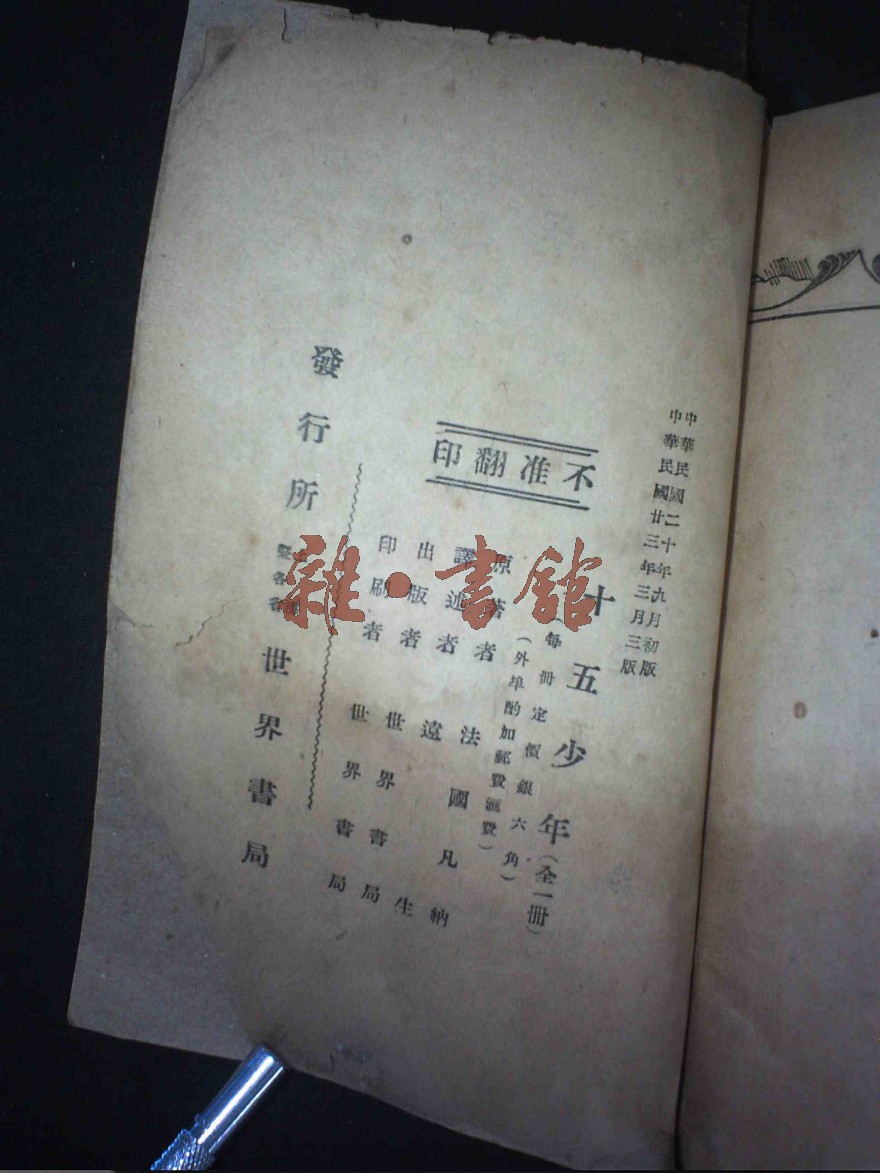 中華民國二十年九月初版
中華民國廿三年三月三版
不准翻印
十五少年(全一冊)
(每冊定價銀六角)
(外埠酌加郵費滙費)
原著者 法國凡納
譯述者 遠生
出版者 世界書局
印刷者 世界書局
發行所 世界書局
雜·書館